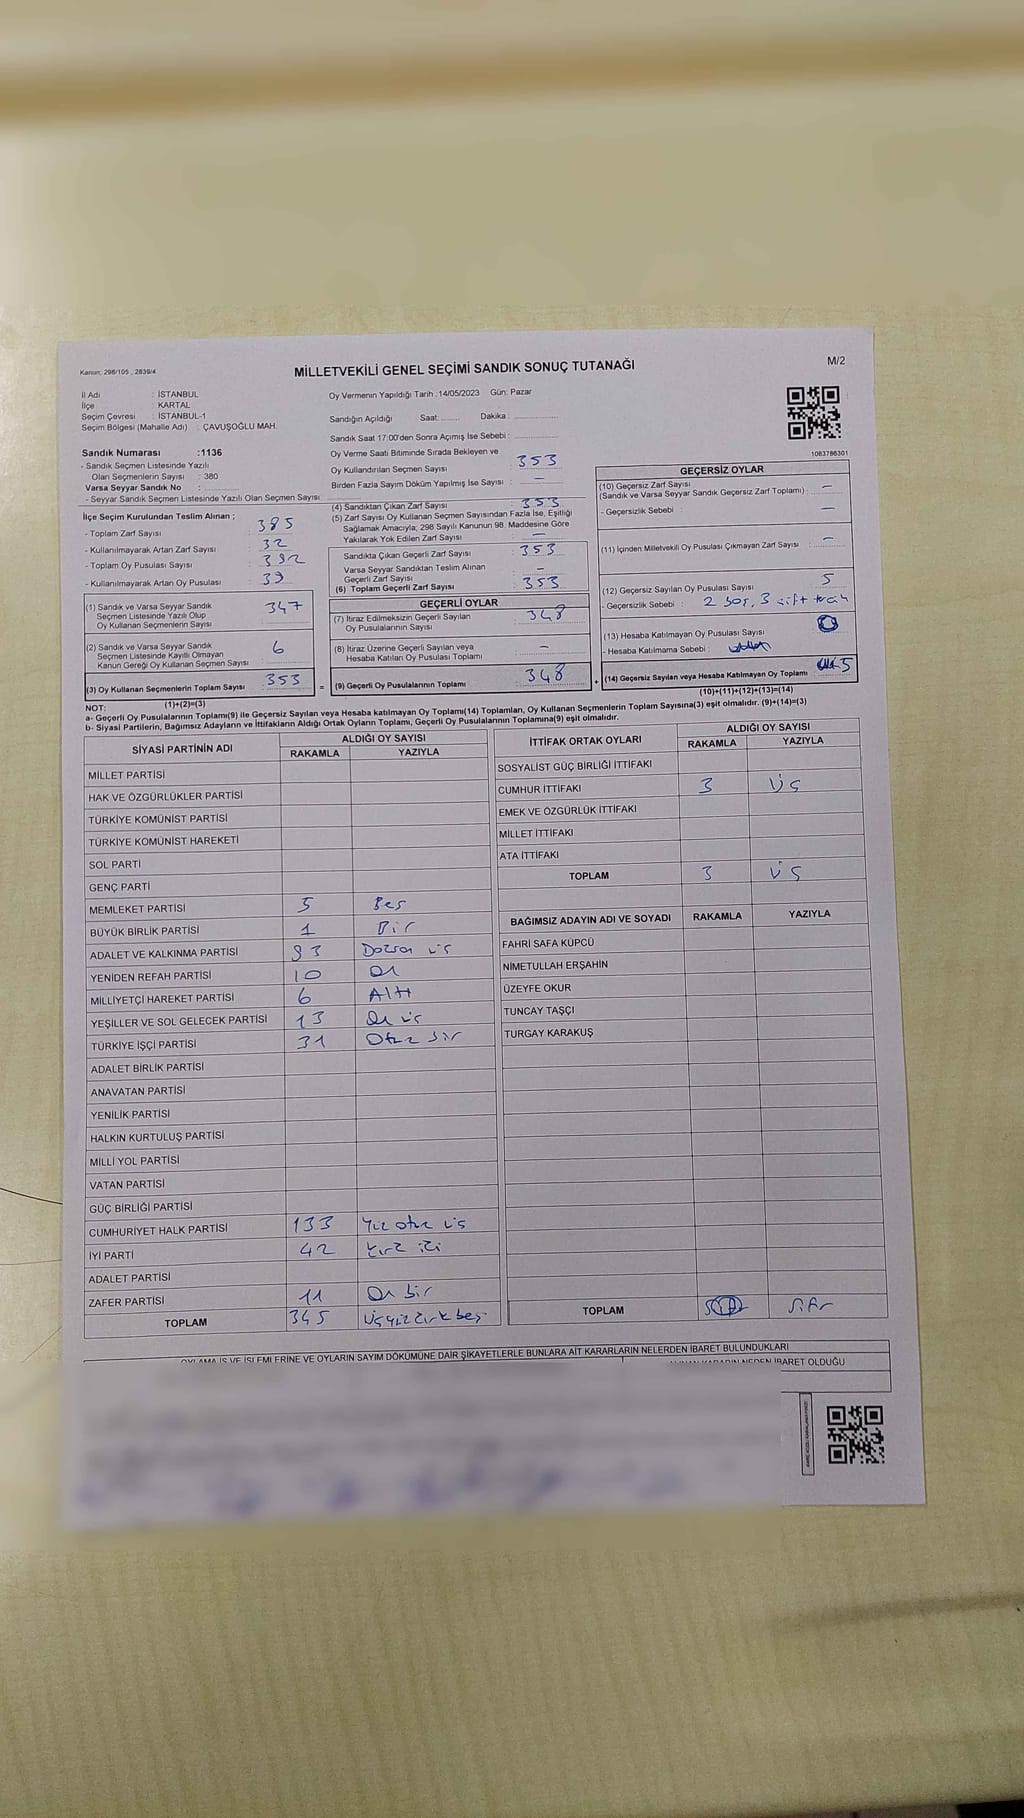 Kanun; 298/105 , 2839/4
MİLLETVEKİLİ GENEL SEÇİMİ SANDIK SONUÇ TUTANAĞI
M/2
İl Adı : İSTANBUL
İlçe : KARTAL
Seçim Çevresi : İSTANBUL-1
Seçim Bölgesi (Mahalle Adı) : ÇAVUŞOĞLU MAH.
Sandık Numarası :1136
- Sandık Seçmen Listesinde Yazılı
Olan Seçmenlerin Sayısı : 380
Varsa Seyyar Sandık No :
- Seyyar Sandık Seçmen Listesinde Yazılı Olan Seçmen Sayısı
Oy Vermenin Yapıldığı Tarih :14/05/2023 Gün: Pazar
Sandığın Açıldığı Saat: Dakika :
Sandık Saat 17:00'den Sonra Açımış İse Sebebi :
Oy Verme Saati Bitiminde Sırada Bekleyen ve
Oy Kullandırılan Seçmen Sayısı : 353
Birden Fazla Sayım Döküm Yapılmış İse Sayısı : —
1083786301
İlçe Seçim Kurulundan Teslim Alınan ;
- Toplam Zarf Sayısı : 385
- Kullanılmayarak Artan Zarf Sayısı : 32
- Toplam Oy Pusulası Sayısı : 392
- Kullanılmayarak Artan Oy Pusulası : 39
(1) Sandık ve Varsa Seyyar Sandık
Seçmen Listesinde Yazılı Olup
Oy Kullanan Seçmenlerin Sayısı : 347
(2) Sandık ve Varsa Seyyar Sandık
Seçmen Listesinde Kayıtlı Olmayan
Kanun Gereği Oy Kullanan Seçmen Sayısı : 6
(3) Oy Kullanan Seçmenlerin Toplam Sayısı : 353
(1)+(2)=(3)
(4) Sandıktan Çıkan Zarf Sayısı : 353
(5) Zarf Sayısı Oy Kullanan Seçmen Sayısından Fazla İse, Eşitliği
Sağlamak Amacıyla; 298 Sayılı Kanunun 98. Maddesine Göre
Yakılarak Yok Edilen Zarf Sayısı : —
Sandıkta Çıkan Geçerli Zarf Sayısı : 353
Varsa Seyyar Sandıktan Teslim Alınan
Geçerli Zarf Sayısı : —
(6) Toplam Geçerli Zarf Sayısı : 353
GEÇERLİ OYLAR
(7) İtiraz Edilmeksizin Geçerli Sayılan
Oy Pusulalarının Sayısı : 348
(8) İtiraz Üzerine Geçerli Sayılan veya
Hesaba Katılan Oy Pusulası Toplamı : —
= (9) Geçerli Oy Pusulalarının Toplamı : 348
GEÇERSİZ OYLAR
(10) Geçersiz Zarf Sayısı
(Sandık ve Varsa Seyyar Sandık Geçersiz Zarf Toplamı) : —
- Geçersizlik Sebebi : —
(11) İçinden Milletvekili Oy Pusulası Çıkmayan Zarf Sayısı : —
(12) Geçersiz Sayılan Oy Pusulası Sayısı : 5
- Geçersizlik Sebebi : 2 boş, 3 çift tercih
(13) Hesaba Katılmayan Oy Pusulası Sayısı : 0
- Hesaba Katılmama Sebebi :
+ (14) Geçersiz Sayılan veya Hesaba Katılmayan Oy Toplamı : 5
(10)+(11)+(12)+(13)=(14)
NOT:
a- Geçerli Oy Pusulalarının Toplamı(9) ile Geçersiz Sayılan veya Hesaba katılmayan Oy Toplamı(14) Toplamları, Oy Kullanan Seçmenlerin Toplam Sayısına(3) eşit olmalıdır. (9)+(14)=(3)
b- Siyasi Partilerin, Bağımsız Adayların ve İttifakların Aldığı Ortak Oyların Toplamı, Geçerli Oy Pusulalarının Toplamına(9) eşit olmalıdır.
SİYASİ PARTİNİN ADI
ALDIĞI OY SAYISI
RAKAMLA YAZIYLA
MİLLET PARTİSİ
HAK VE ÖZGÜRLÜKLER PARTİSİ
TÜRKİYE KOMÜNİST PARTİSİ
TÜRKİYE KOMÜNİST HAREKETİ
SOL PARTİ
GENÇ PARTİ
MEMLEKET PARTİSİ 5 Beş
BÜYÜK BİRLİK PARTİSİ 1 Bir
ADALET VE KALKINMA PARTİSİ 93 Doksan üç
YENİDEN REFAH PARTİSİ 10 On
MİLLİYETÇİ HAREKET PARTİSİ 6 Altı
YEŞİLLER VE SOL GELECEK PARTİSİ 13 On üç
TÜRKİYE İŞÇİ PARTİSİ 31 Otuz bir
ADALET BİRLİK PARTİSİ
ANAVATAN PARTİSİ
YENİLİK PARTİSİ
HALKIN KURTULUŞ PARTİSİ
MİLLİ YOL PARTİSİ
VATAN PARTİSİ
GÜÇ BİRLİĞİ PARTİSİ
CUMHURİYET HALK PARTİSİ 133 Yüz otuz üç
İYİ PARTİ 42 Kırk iki
ADALET PARTİSİ
ZAFER PARTİSİ 11 On bir
TOPLAM 345 Üçyüz kırk beş
İTTİFAK ORTAK OYLARI
ALDIĞI OY SAYISI
RAKAMLA YAZIYLA
SOSYALİST GÜÇ BİRLİĞİ İTTİFAKI
CUMHUR İTTİFAKI 3 Üç
EMEK VE ÖZGÜRLÜK İTTİFAKI
MİLLET İTTİFAKI
ATA İTTİFAKI
TOPLAM 3 Üç
BAĞIMSIZ ADAYIN ADI VE SOYADI RAKAMLA YAZIYLA
FAHRİ SAFA KÜPCÜ
NİMETULLAH ERŞAHİN
ÜZEYFE OKUR
TUNCAY TAŞÇI
TURGAY KARAKUŞ
TOPLAM Sıfır
OYLAMA İŞ VE İŞLEMLERİNE VE OYLARIN SAYIM DÖKÜMÜNE DAİR ŞİKAYETLERLE BUNLARA AİT KARARLARIN NELERDEN İBARET BULUNDUKLARI
KARARIN NEDEN İBARET OLDUĞU